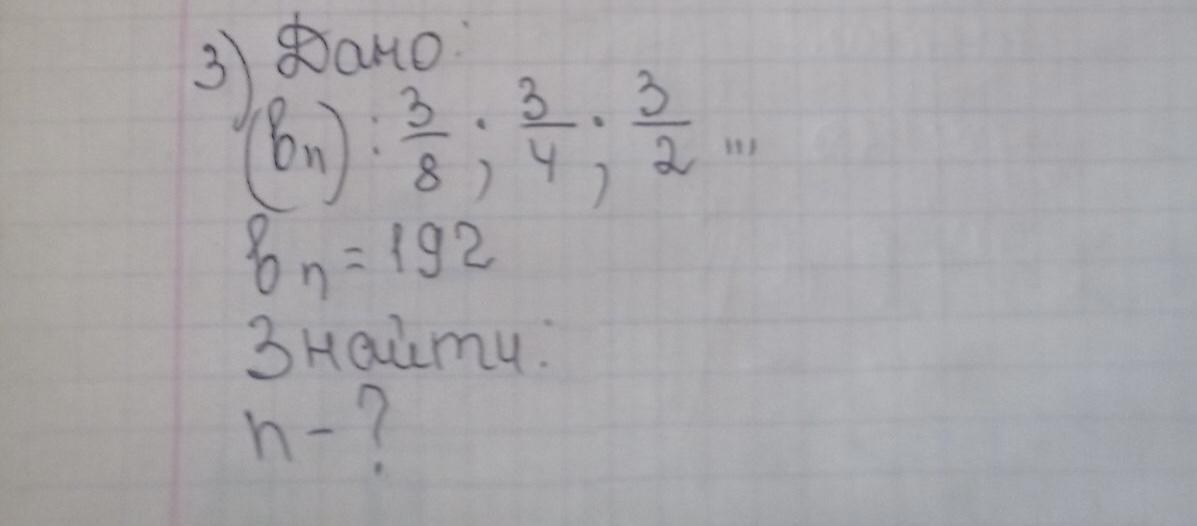 3) Дано:
(bn): 3/8; 3/4; 3/2 ...
bn = 192
Знайти:
n - ?